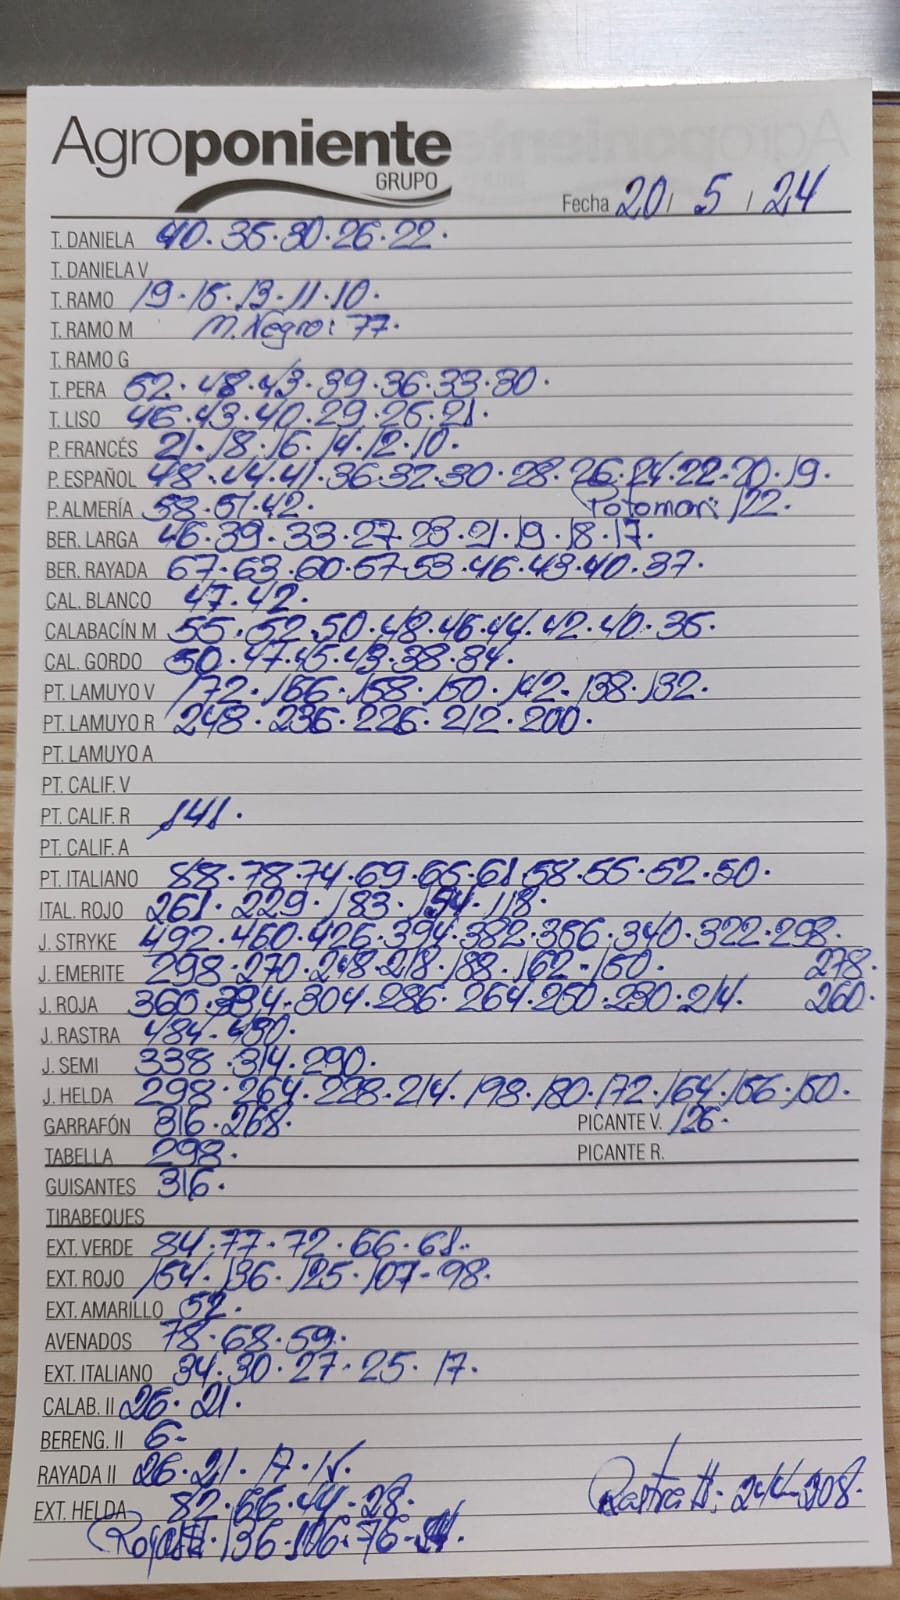 Agroponiente
GRUPO
Fecha 20 / 5 / 24
T. DANELA 40. 35. 30. 26. 22.
T. DANIELA V
T. RAMO 19. 15. 13. 11. 10.
T. RAMO M M. Negro: 77.
T. RAMO G
T. PERA 52. 48. 43. 39. 36. 33. 30.
T. LISO 46. 43. 40. 29. 25. 21.
P. FRANCÉS 21. 18. 16. 14. 12. 10.
P. ESPAÑOL 48. 44. 41. 36. 32. 30. 28. 26. 24. 22. 20. 19.
P. ALMERÍA 58. 51. 42. 122.
BER. LARGA 46. 39. 33. 27. 23. 21. 19. 18. 17.
BER. RAYADA 67. 63. 60. 57. 53. 46. 43. 40. 37.
CAL. BLANCO 47. 42.
CALABACÍN M 55. 52. 50. 48. 46. 44. 42. 40. 35.
CAL. GORDO 50. 47. 45. 43. 38. 34.
PT. LAMUYO V 172. 166. 158. 150. 142. 138. 132.
PT. LAMUYO R 248. 236. 226. 212. 200.
PT. LAMUYO A
PT. CALIF. V
PT. CALIF. R 141.
PT. CALIF. A
PT. ITALIANO 88. 78. 74. 69. 65. 61. 58. 55. 52. 50.
ITAL. ROJO 261. 229. 183. 154. 118.
J. STRYKE 492. 460. 426. 394. 382. 366. 340. 322. 298.
J. EMERITE 298. 270. 248. 218. 188. 162. 150. 278.
J. ROJA 360. 334. 304. 286. 264. 250. 230. 214. 260.
J. RASTRA 484. 430.
J. SEMI 338. 314. 290.
J. HELDA 298. 264. 228. 214. 198. 180. 172. 164. 156. 150.
GARRAFÓN 316. 268. PICANTE V. 126.
TABELLA 298. PICANTE R.
GUISANTES 316.
TIRABEQUES
EXT. VERDE 84. 77. 72. 66. 61.
EXT. ROJO 154. 136. 125. 107. 98.
EXT. AMARILLO 52.
AVENADOS 78. 68. 59.
EXT. ITALIANO 34. 30. 27. 25. 17.
CALAB. II 26. 21.
BERENG. II 6.
RAYADA II 26. 21. 17. 15.
EXT. HELDA 82. 66. 44. 28. Rastra II: 244-208.
Roja II: 136. 106. 76.